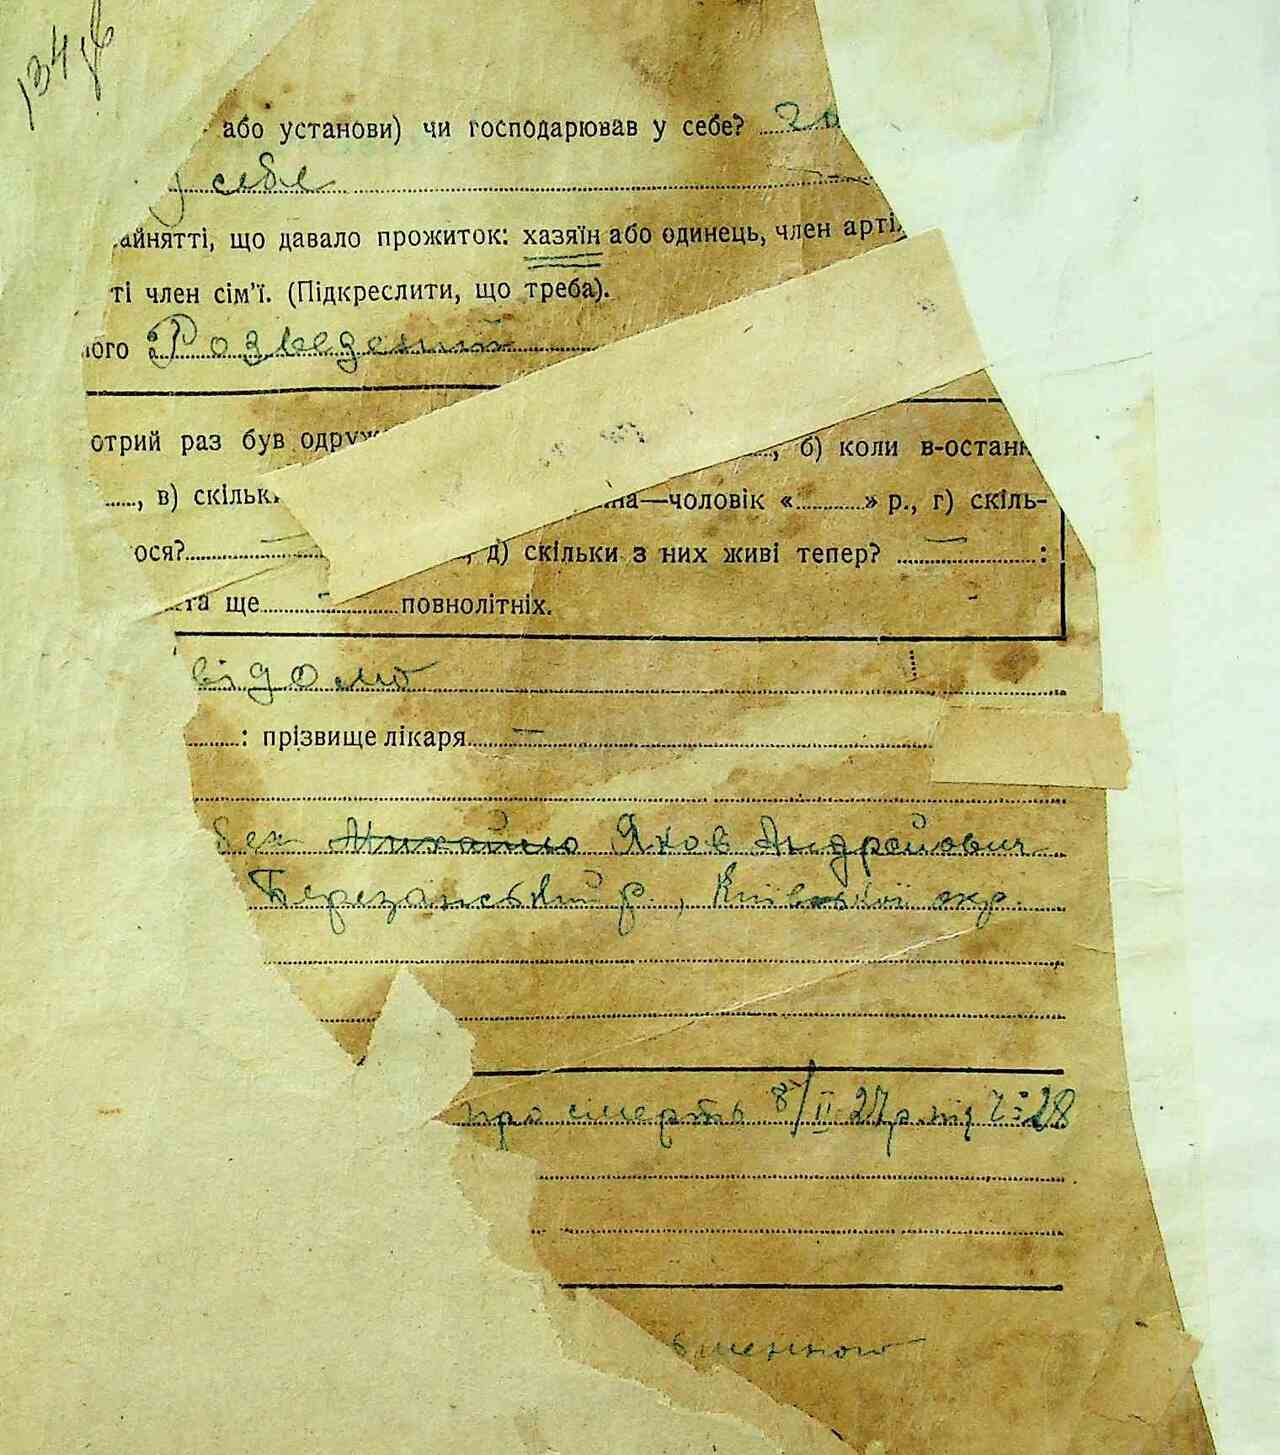 134
або установи) чи господарював у себе? го
у себе
айнятті, що давало прожиток: хазяїн або одинець, член арті
ті член сім'ї. (Підкреслити, що треба).
ого Розведений
отрий раз був одруж б) коли в-останн
, в) скільк на—чоловік «......» р., г) скіль-
ося? , д) скільки з них живі тепер? — :
та ще - повнолітніх.
відомо
: прізвище лікаря —
Михайло Яков Андрейович
Березанський р., Київської окр.
про смерть 8/II 27 р. під № 28